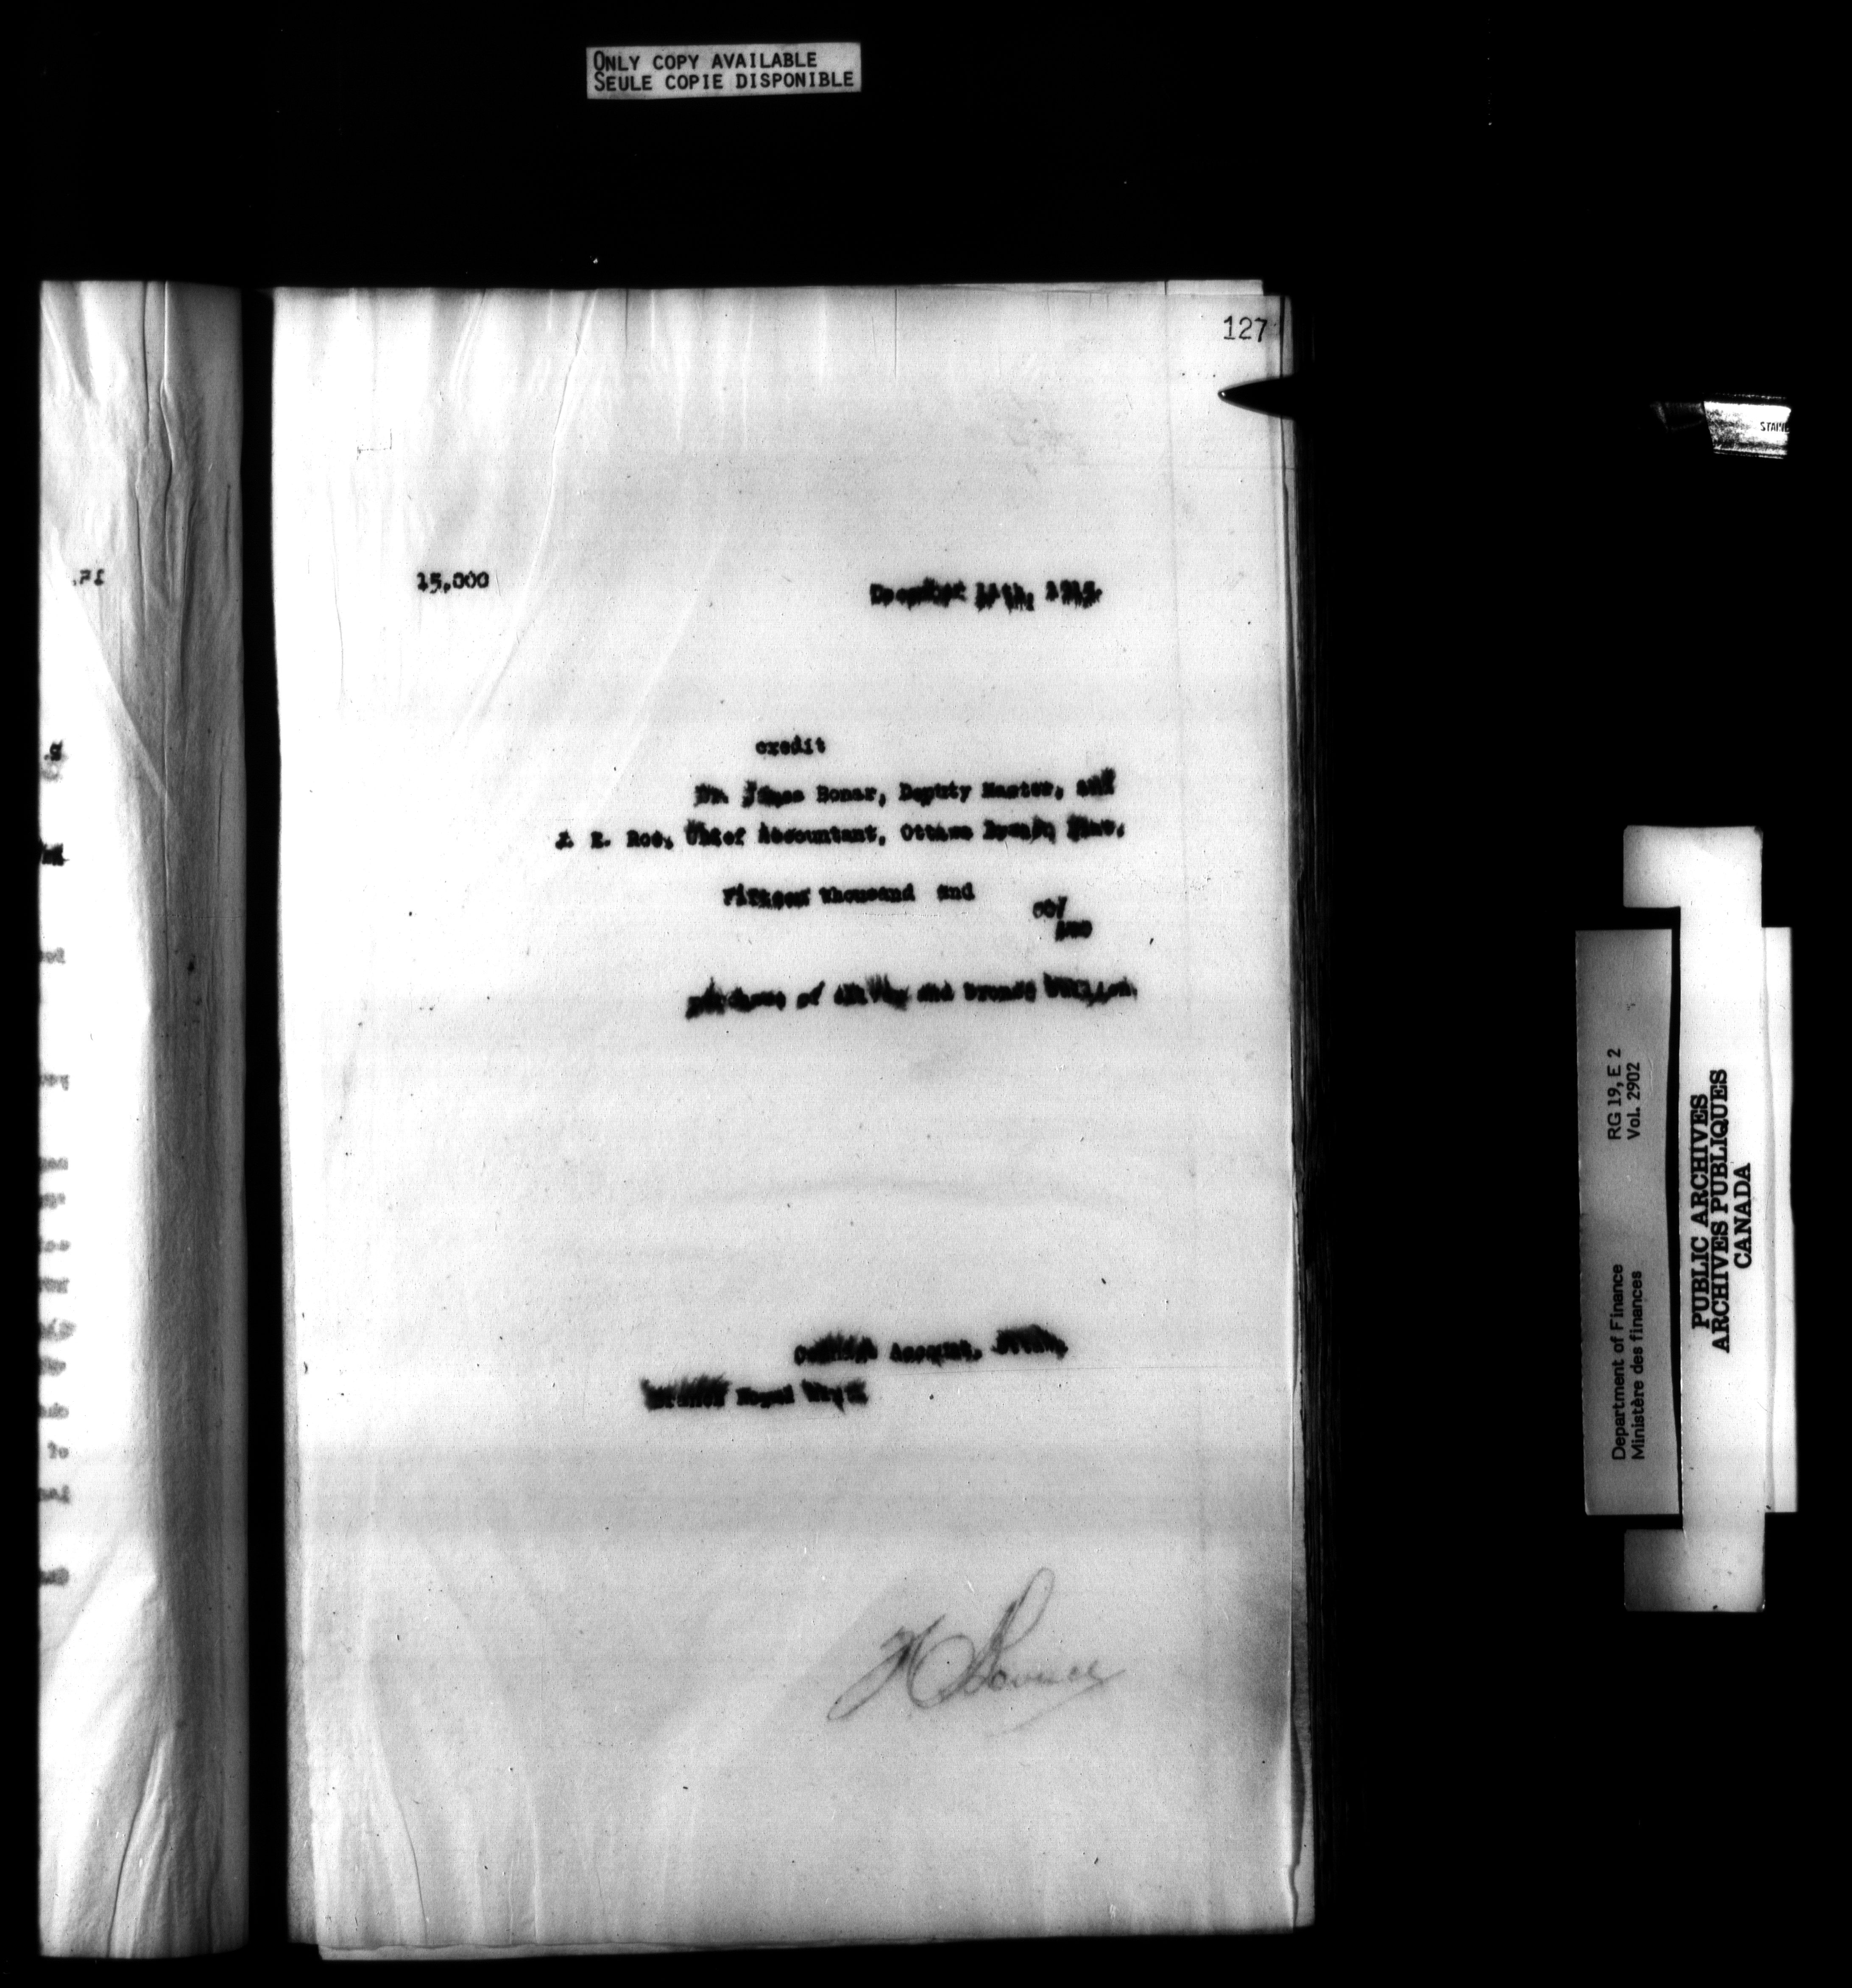 ONLY COPY AVAILABLE
SEULE COPIE DISPONIBLE
127
15,000
December 1915.
credit
Dr. James Bonar, Deputy Master, and
J. E. Roe, Chief Accountant, Ottawa
Fifteen thousand and 00/100
purchase of silver and bronze bullion.
Account, Ottawa
Branch Royal Mint.
RG 19, E 2
Vol. 2902
Department of Finance
Ministère des finances
PUBLIC ARCHIVES
ARCHIVES PUBLIQUES
CANADA